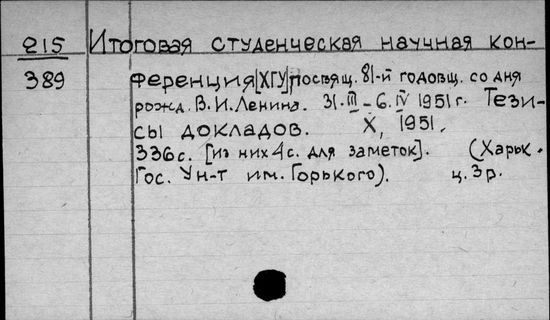 215 Итоговая студенческая научная кон-
389 ференция [ХГУ] посвящ. 81-й годовщ. со дня
рожд. В.И.Ленина. 31.III – 6.IV 1951 г. Тези-
сы докладов. Х, 1951.
336 с. [из них 4 с. для заметок]. (Харьк.
Гос. Ун-т им. Горького). ц. 3 р.